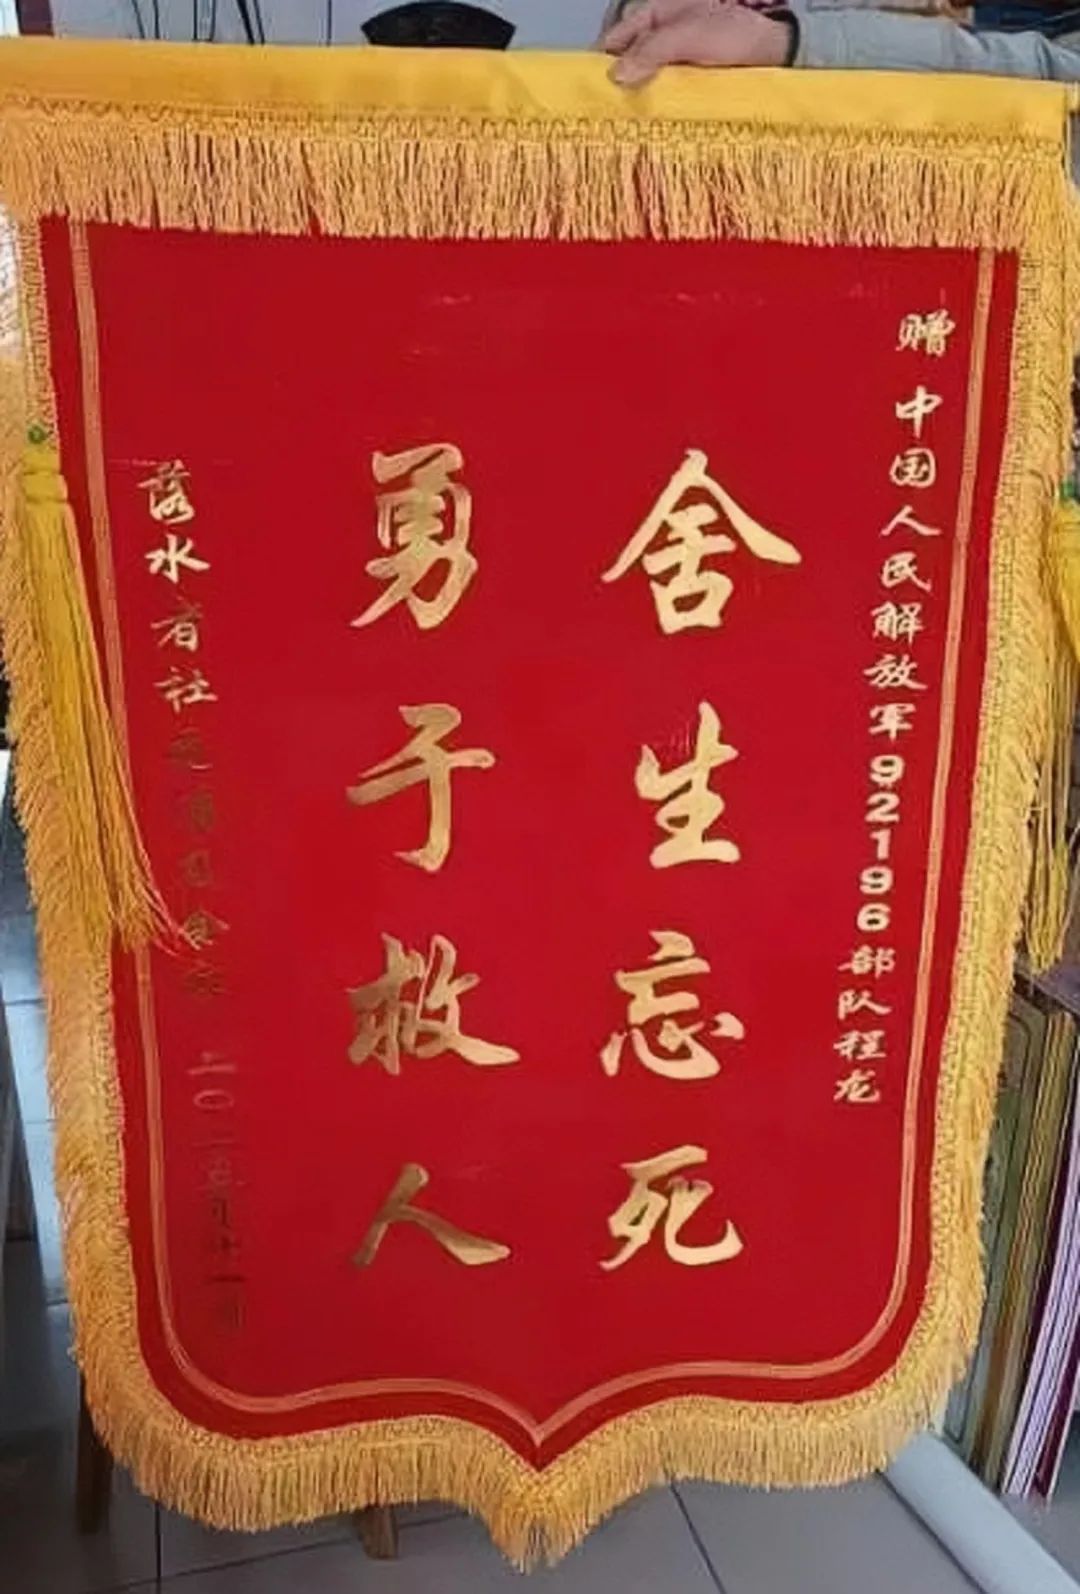 赠中国人民解放军92196部队程龙
舍生忘死
勇于救人
落水者社